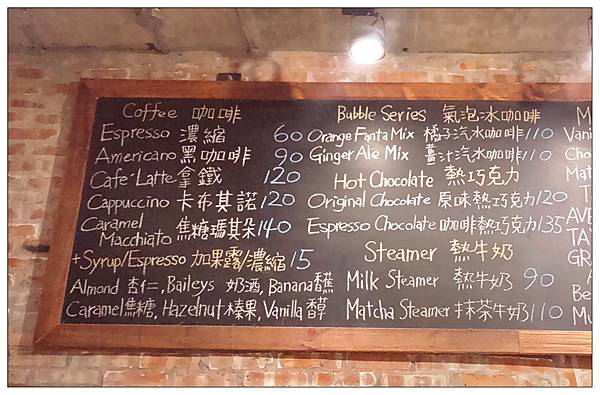 Coffee 咖啡
Espresso 濃縮 60
Americano 黑咖啡 90
Cafe Latte 拿鐵 120
Cappuccino 卡布其諾 120
Caramel Macchiato 焦糖瑪其朵 140
+Syrup/Espresso 加果露/濃縮 15
Almond 杏仁, Baileys 奶酒, Banana 香蕉
Caramel 焦糖, Hazelnut 榛果, Vanilla 香草
Bubble Series 氣泡冰咖啡
Orange Fanta Mix 橘子汽水咖啡 110
Ginger Ale Mix 薑汁汽水咖啡 110
Hot Chocolate 熱巧克力
Original Chocolate 原味熱巧克力 120
Espresso Chocolate 咖啡熱巧克力 135
Steamer 熱牛奶
Milk Steamer 熱牛奶 90
Matcha Steamer 抹茶牛奶 110
M
Vani
Cho
Mat
T
AVE
TA
GRA
A
Be
Mu